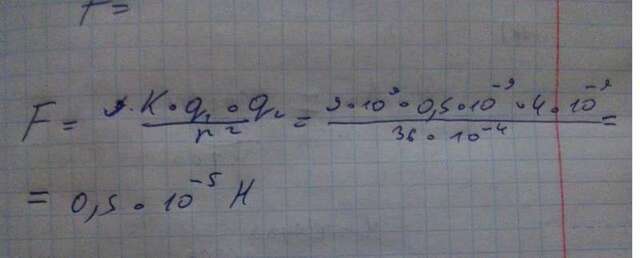 F=
F = K · q₁ · q₂ / r² = 9·10⁹ · 0,5·10⁻⁹ · 4 · 10⁻⁹ / 36 · 10⁻⁴ =
= 0,5 · 10⁻⁵ Н